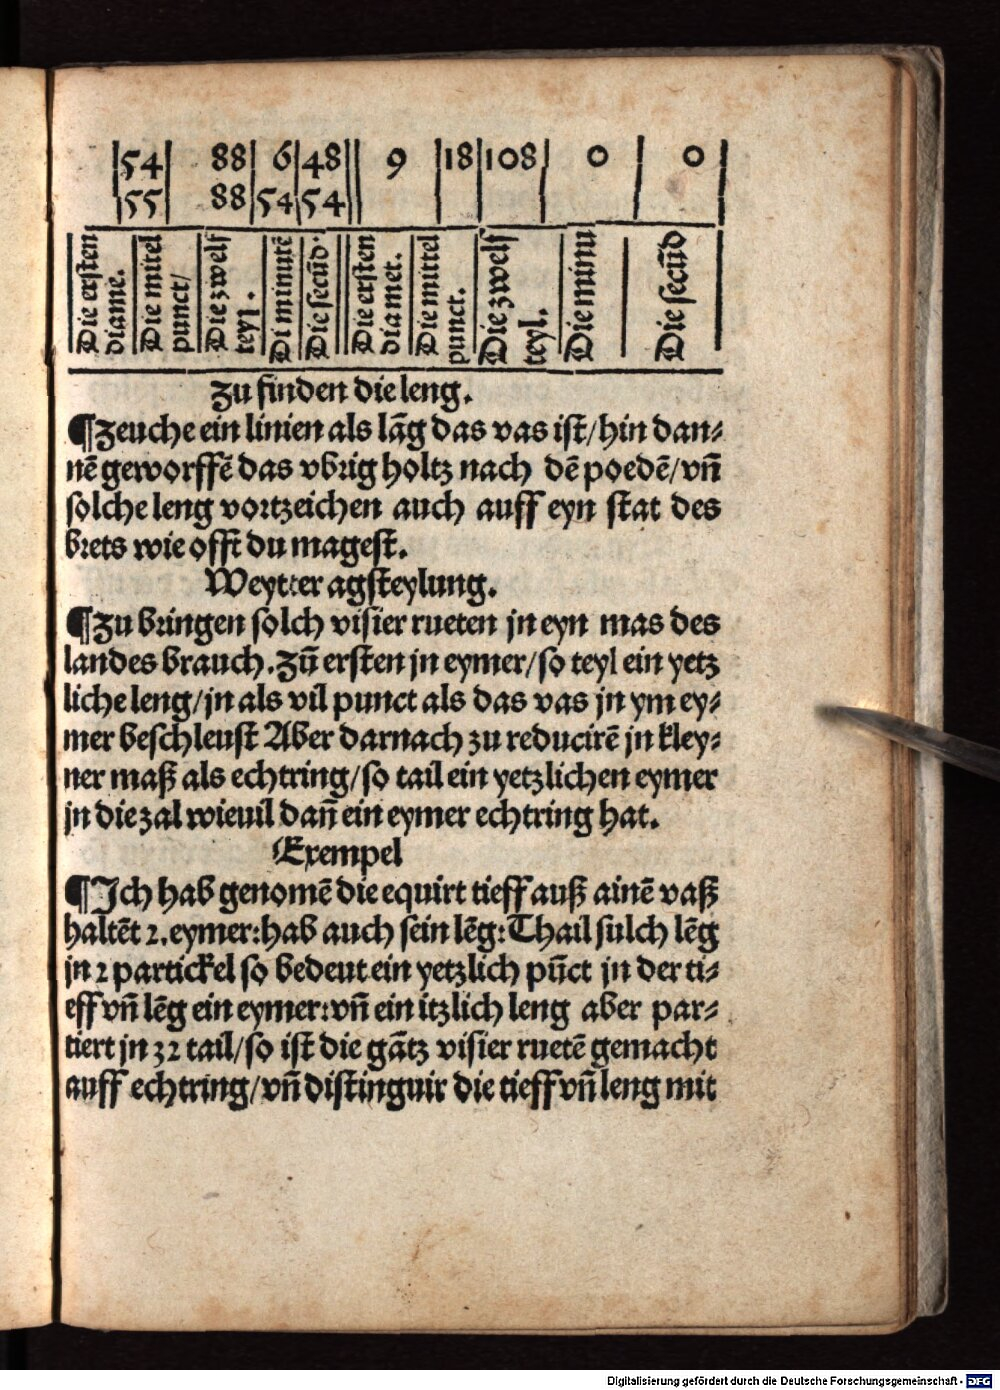 54 88 6 48 9 18 108 0 0
55 88 54 54
Die ersten
diame.
Die mitel
punct/
Die zwelf
teyl.
Di minutē
Die secūd.
Die ersten
dia met.
Die mittel
punct.
Die zwelf
teyl.
Die minu
Die secūd
Zu finden die leng.
¶Zeuche ein linien als lāg das vas ist/hin dan⸗
nē geworffē das vbrig holtz nach dē poedē/vn̄
solche leng vortzeichen auch auff eyn stat des
brets wie offt du magest.
Weytter agsteylung.
¶Zu bringen solch visier rueten jn eyn mas des
landes brauch.Zū ersten jn eymer/so teyl ein yetz
liche leng/jn als vil punct als das vas jn ym ey⸗
mer beschleust Aber darnach zu reducirē jn kley⸗
ner maß als echtring/so tail ein yetzlichen eymer
jn die zal wieuil dan̄ ein eymer echtring hat.
Exempel
¶Ich hab genomē die equirt tieff auß ainē vaß
haltēt 2.eymer:hab auch sein lēg:Thail sulch lēg
jn 2 partickel so bedeut ein yetzlich pūct jn der ti⸗
eff vn̄ lēg ein eymer:vn̄ ein itzlich leng aber par⸗
tiert jn 32 tail/so ist die gātz visier ruetē gemacht
auff echtring/vn̄ distinguir die tieff vn̄ leng mit
Digitalisierung gefördert durch die Deutsche Forschungsgemeinschaft - DFG